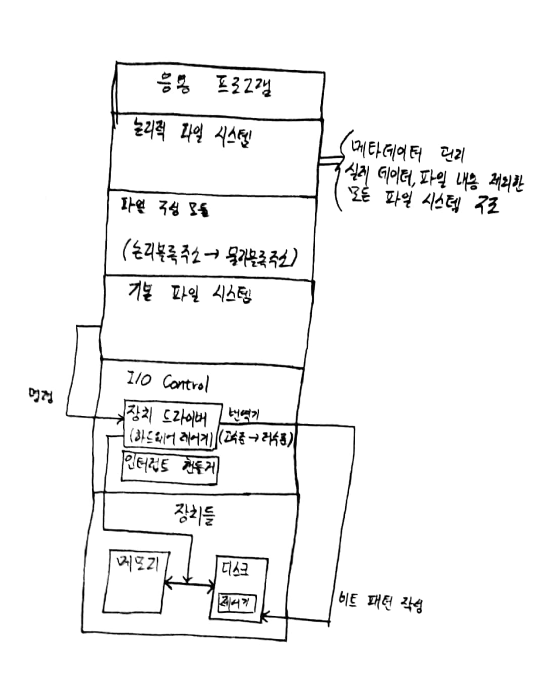 응용 프로그램
논리적 파일 시스템
메타데이터 관리
실제 데이터, 파일 내용 제외한
모든 파일 시스템 구조
파일 구성 모듈
(논리블록주소 → 물리블록주소)
기본 파일 시스템
I/O Control
명령
장치 드라이버
(하드웨어 제어기)
번역기
(고수준 → 저수준)
인터럽트 핸들러
장치들
메모리
디스크
제어기
비트 패턴 작성